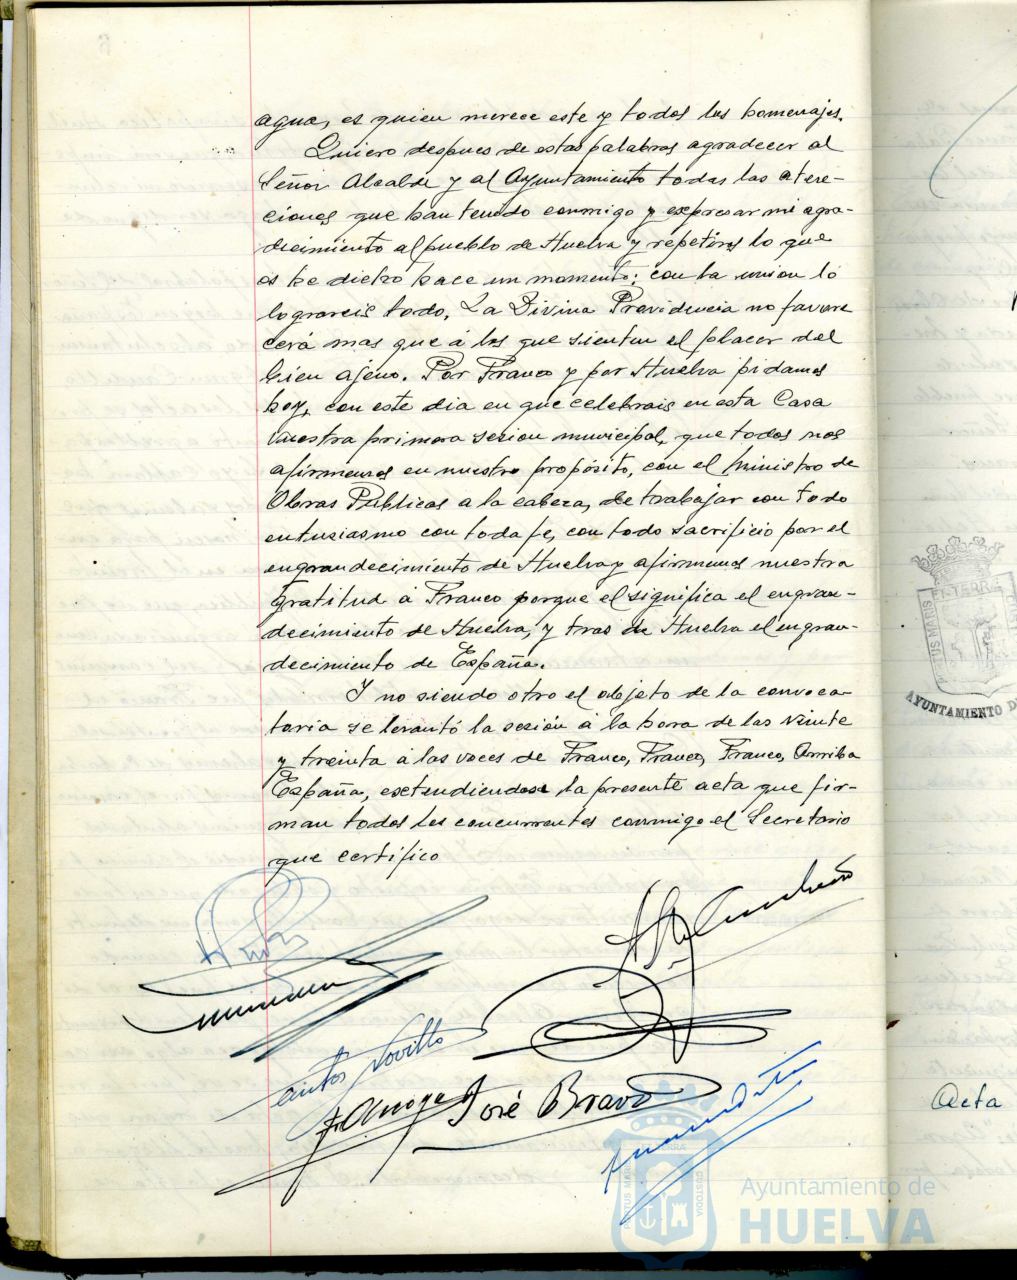 agua, es quien merece este y todos los homenajes.
Quiero despues de estas palabras agradecer al
Señor Alcalde y al Ayuntamiento todas las aten-
ciones que han tenido conmigo y expresar mi agra-
decimiento al pueblo de Huelva y repetiros lo que
os he dicho hace un momento: con la union lo
lograreis todo. La Divina Providencia no favore
cerá mas que á los que sienten el placer del
bien ajeno. Por Franco y por Huelva pidamos
hoy, con este dia en que celebrais en esta Casa
vuestra primera sesion municipal, que todos nos
afirmemos en nuestro propósito, con el Ministro de
Obras Públicas a la cabeza, de trabajar con todo
entusiasmo con toda fe, con todo sacrificio por el
engrandecimiento de Huelva y afirmemos nuestra
gratitud á Franco porque el significa el engran-
decimiento de Huelva, y tras de Huelva el engran-
decimiento de España.
Y no siendo otro el objeto de la convoca-
toria se levantó la sesión á la hora de las veinte
y treinta á las voces de Franco, Franco, Franco, Arriba
España, extendiendose la presente acta que fir-
man todos los concurrentes conmigo el Secretario
que certifico
Novillo
José Bravo
PORTUS MARIS ET TERRAE
AYUNTAMIENTO D
Acta
PORTUS MARIS ET TERRAE CUSTODIA
Ayuntamiento de
HUELVA